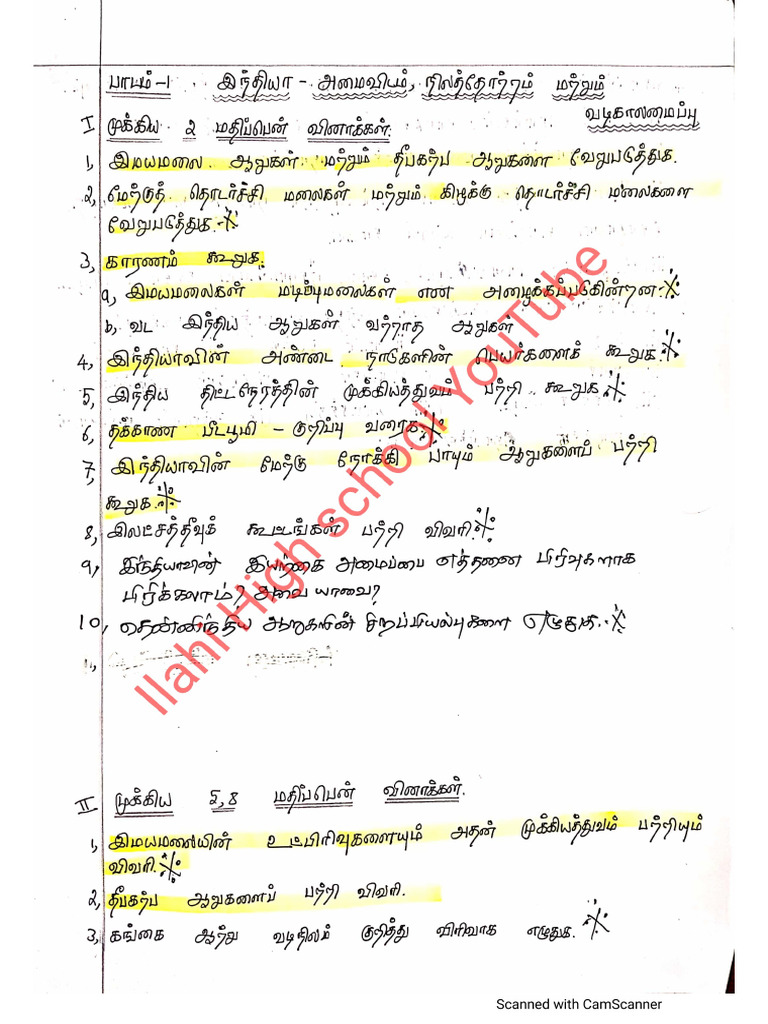 பாடம்-1 இந்தியா - அமைவிடம், நிலத்தோற்றம் மற்றும்
வடிகாலமைப்பு
I முக்கிய 2 மதிப்பெண் வினாக்கள்.
1, இமயமலை ஆறுகள் மற்றும் தீபகற்ப ஆறுகளை வேறுபடுத்துக.
2, மேற்குத் தொடர்ச்சி மலைகள் மற்றும் கிழக்கு தொடர்ச்சி மலைகளை
வேறுபடுத்துக.
3, காரணம் கூறுக.
a, இமயமலைகள் மடிப்புமலைகள் என அழைக்கப்படுகின்றன.
b, வட இந்திய ஆறுகள் வற்றாத ஆறுகள்
4, இந்தியாவின் அண்டை நாடுகளின் பெயர்களைக் கூறுக.
5, இந்திய திட்டநேரத்தின் முக்கியத்துவம் பற்றி கூறுக.
6, தக்காண பீடபூமி - குறிப்பு வரைக.
7, இந்தியாவின் மேற்கு நோக்கி பாயும் ஆறுகளைப் பற்றி
கூறுக.
8, இலட்சத்தீவுக் கூட்டங்கள் பற்றி விவரி.
9, இந்தியாவின் இயற்கை அமைப்பை எத்தனை பிரிவுகளாக
பிரிக்கலாம்? அவை யாவை?
10, தென்னிந்திய ஆறுகளின் சிறப்பியல்புகளை எழுதுக.
11,
Ilahi High school YouTube
II முக்கிய 5,8 மதிப்பெண் வினாக்கள்.
1, இமயமலையின் உட்பிரிவுகளையும் அதன் முக்கியத்துவம் பற்றியும்
விவரி.
2, தீபகற்ப ஆறுகளைப் பற்றி விவரி.
3, கங்கை ஆற்று வடிநிலம் குறித்து விரிவாக எழுதுக.
Scanned with CamScanner